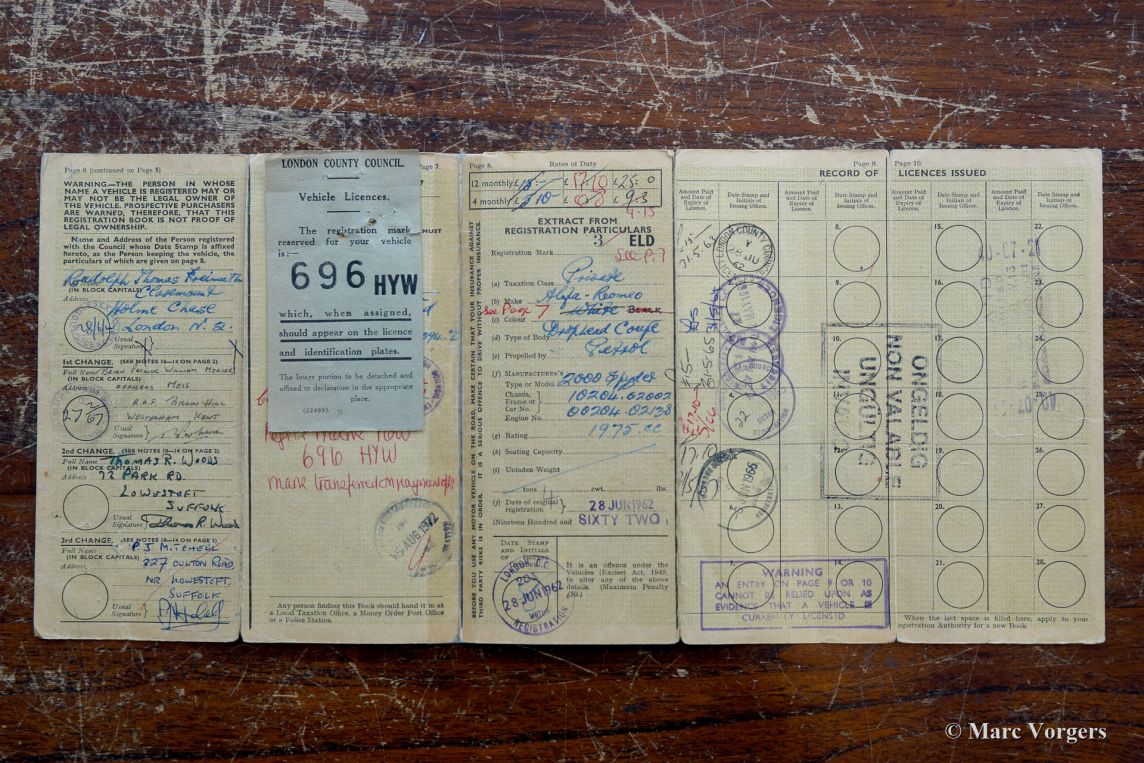 Page 6 (continued on Page 5)
WARNING.—THE PERSON IN WHOSE
NAME A VEHICLE IS REGISTERED MAY OR
MAY NOT BE THE LEGAL OWNER OF
THE VEHICLE. PROSPECTIVE PURCHASERS
ARE WARNED, THEREFORE, THAT THIS
REGISTRATION BOOK IS NOT PROOF OF
LEGAL OWNERSHIP.
Name and Address of the Person registered
with the Council whose Date Stamp is affixed
hereto, as the Person keeping the vehicle, the
particulars of which are given on page 8.
Randolph Thomas
(IN BLOCK CAPITALS)
Claremount
Address
Holne Chase
London N. 2.
Usual
Signature
1st CHANGE. (SEE NOTES 10—14 ON PAGE 2)
Full Name Brian Patrick William Mercer
(IN BLOCK CAPITALS)
Address Officers Mess
R.A.F. Biggin Hill
Westerham Kent
Usual
Signature
2nd CHANGE. (SEE NOTES 10—14 ON PAGE 2)
Full Name THOMAS R. WOODS
(IN BLOCK CAPITALS)
Address 72 PARK RD.
LOWESTOFT
SUFFOLK
Usual
Signature Thomas R. Woods
3rd CHANGE. (SEE NOTES 10—14 ON PAGE 2)
Full Name P J MITCHELL
(IN BLOCK CAPITALS)
Address 227 OULTON ROAD,
NR. LOWESTOFT,
SUFFOLK
Usual
Signature
Page 7.
LONDON COUNTY COUNCIL.
Vehicle Licences.
The registration mark
reserved for your vehicle
is:—
696 HYW
which, when assigned,
should appear on the licence
and identification plates.
The lower portion to be detached and
affixed to declaration in the appropriate
place.
(22488).
MUST
Regn mark now
696 HYW
mark transferred
AUG 1972
Any person finding this Book should hand it in at
a Local Taxation Office, a Money Order Post Office
or a Police Station.
BEFORE YOU USE ANY MOTOR VEHICLE ON THE ROAD, MAKE CERTAIN THAT YOUR INSURANCE AGAINST
THIRD PARTY RISKS IS IN ORDER. IT IS A SERIOUS OFFENCE TO DRIVE WITHOUT PROPER INSURANCE
Page 8.
Rates of Duty
12 monthly £15:- £17.10 £25: 0
4 monthly £
9.15
EXTRACT FROM
REGISTRATION PARTICULARS
3 ELD
Registration Mark
see P.7
(a) Taxation Class Private
(b) Make Alfa-Romeo
see Page 7
(c) Colour White BLACK
(d) Type of Body Drophead Coupe
(e) Propelled by Petrol
(f) MANUFACTURER'S
Type or Model 2000 Spyder
Chassis,
Frame or
Car No. 10204.02002
Engine No. 00204.02138
(g) Rating 1975 cc
(h) Seating Capacity
(i) Unladen Weight
tons cwt. lbs.
(j) Date of original
registration 28 JUN 1962
(Nineteen Hundred and SIXTY TWO)
DATE STAMP
AND INITIALS
OF
LONDON C.C.
203
28 JUN 1962
REGISTRATION
It is an offence under the
Vehicles (Excise) Act, 1949,
to alter any of the above
details. (Maximum Penalty
£50.)
Page 9.
RECORD OF
Amount Paid and Date of Expiry of Licence.
Date Stamp and Initials of Issuing Officer.
Amount Paid and Date of Expiry of Licence.
Date Stamp and Initials of Issuing Officer.
8.
9.
10.
11.
12.
13.
14.
WARNING
AN ENTRY ON PAGE 9 OR 10
CANNOT BE RELIED UPON AS
EVIDENCE THAT A VEHICLE IS
CURRENTLY LICENSED
Page 10.
LICENCES ISSUED
Amount Paid and Date of Expiry of Licence.
Date Stamp and Initials of Issuing Officer.
Amount Paid and Date of Expiry of Licence.
Date Stamp and Initials of Issuing Officer.
15.
16.
17.
18.
19.
20.
21.
22.
23.
24.
25.
26.
27.
28.
ONGELDIG
NON VALABLE
UNGULTIG
When the last space is filled here, apply to your
registration Authority for a new Book.
© Marc Vorgers